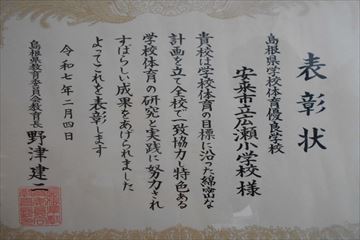 表彰状
島根県学校体育優良学校
安来市立広瀬小学校 様
貴校は学校体育の目標に沿った綿密な
計画を立て全校一致協力し特色ある
学校体育の研究と実践に努力され
すばらしい成果をあげられました
よってこれを表彰します
令和七年二月四日
島根県教育委員会教育長 野津建二